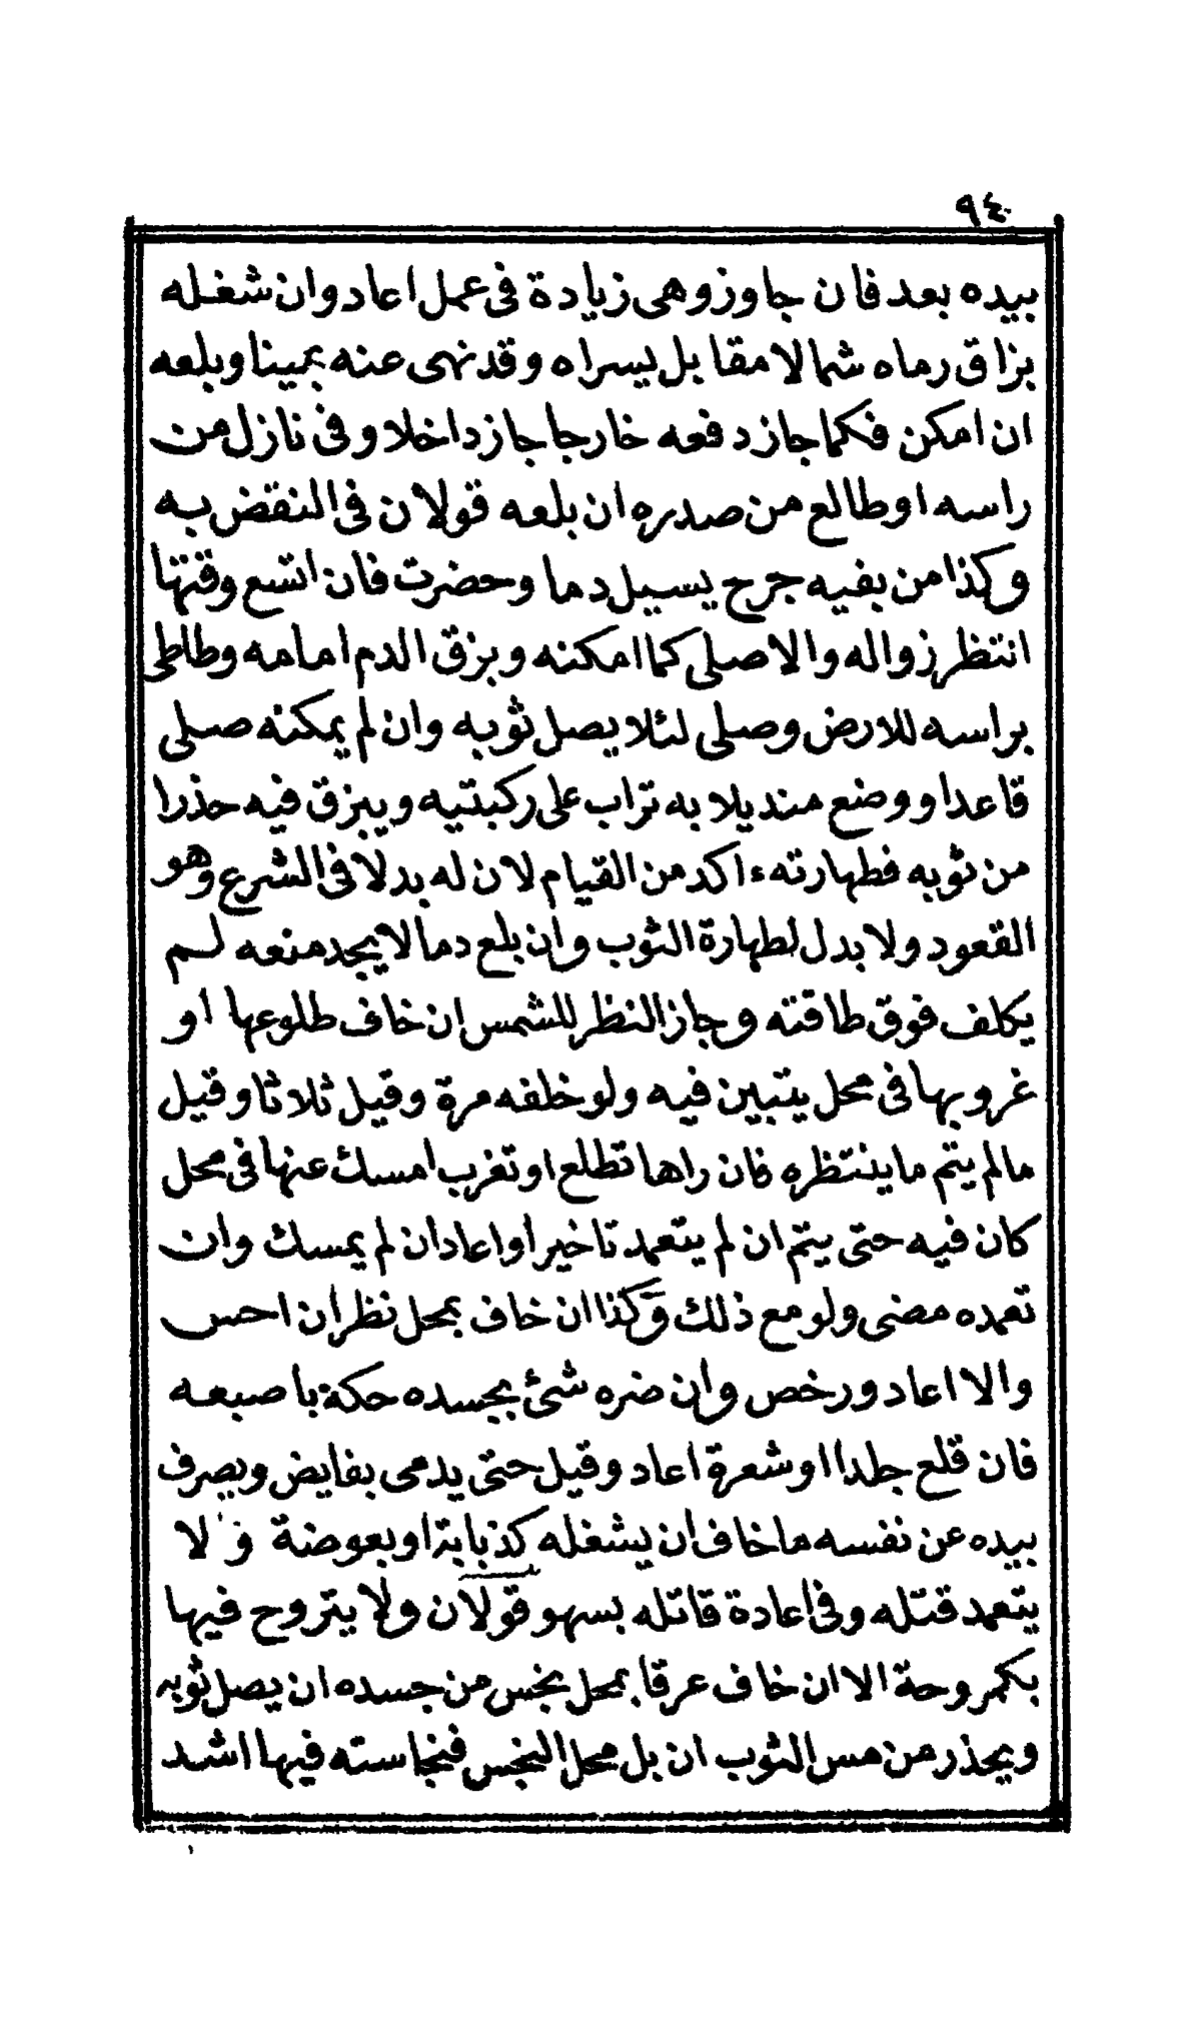 ٩٤
بيده بعد فان جاوز وهى زيادة فى عمل اعاد وان شغله
بزاق رماه شمالا مقابل يسراه وقد نهى عنه يمينا وبلعه
ان امكن فكما جاز دفعه خارجا جاز داخلا وفى نازل من
راسه او طالع من صدره ان بلعه قولان فى النقض به
وكذا من بفيه جرح يسيل دما وحضرت فان اتسع وقتها
انتظر زواله والا صلى كما امكنه وبزق الدم امامه وطاطى
براسه للارض وصلى لئلا يصل ثوبه وان لم يمكنه صلى
قاعدا ووضع منديلا به تراب على ركبتيه ويبزق فيه حذرا
من ثوبه فطهارته ءاكد من القيام لان له بدلا فى الشرع وهو
القعود ولا بدل لطهارة الثوب وان بلع دما لا يجد منعه لم
يكلف فوق طاقته وجاز النظر للشمس ان خاف طلوعها او
غروبها فى محل يتبين فيه ولو خلفه مرة وقيل ثلاثا وقيل
مالم يتم ما ينتظره فان راها تطلع او تغرب امسك عنها فى محل
كان فيه حتى يتم ان لم يتعمد تاخيرا واعاد ان لم يمسك وان
تعمده مضى ولو مع ذلك وكذا ان خاف بمحل نظر ان احس
والا اعاد ورخص وان ضره شئ بجسده حكة باصبعه
فان قلع جلدا او شعرة اعاد وقيل حتى يدمى بفايض ويصرف
بيده عن نفسه ما خاف ان يشغله كذبابة او بعوضة ولا
يتعمد قتله وفى اعادة قاتله بسهو قولان ولا يتروح فيها
بكمروحة الا ان خاف عرقا بمحل نجس من جسده ان يصل ثوبه
ويحذر من مس الثوب ان بل محل النجس فنجاسته فيها اشد